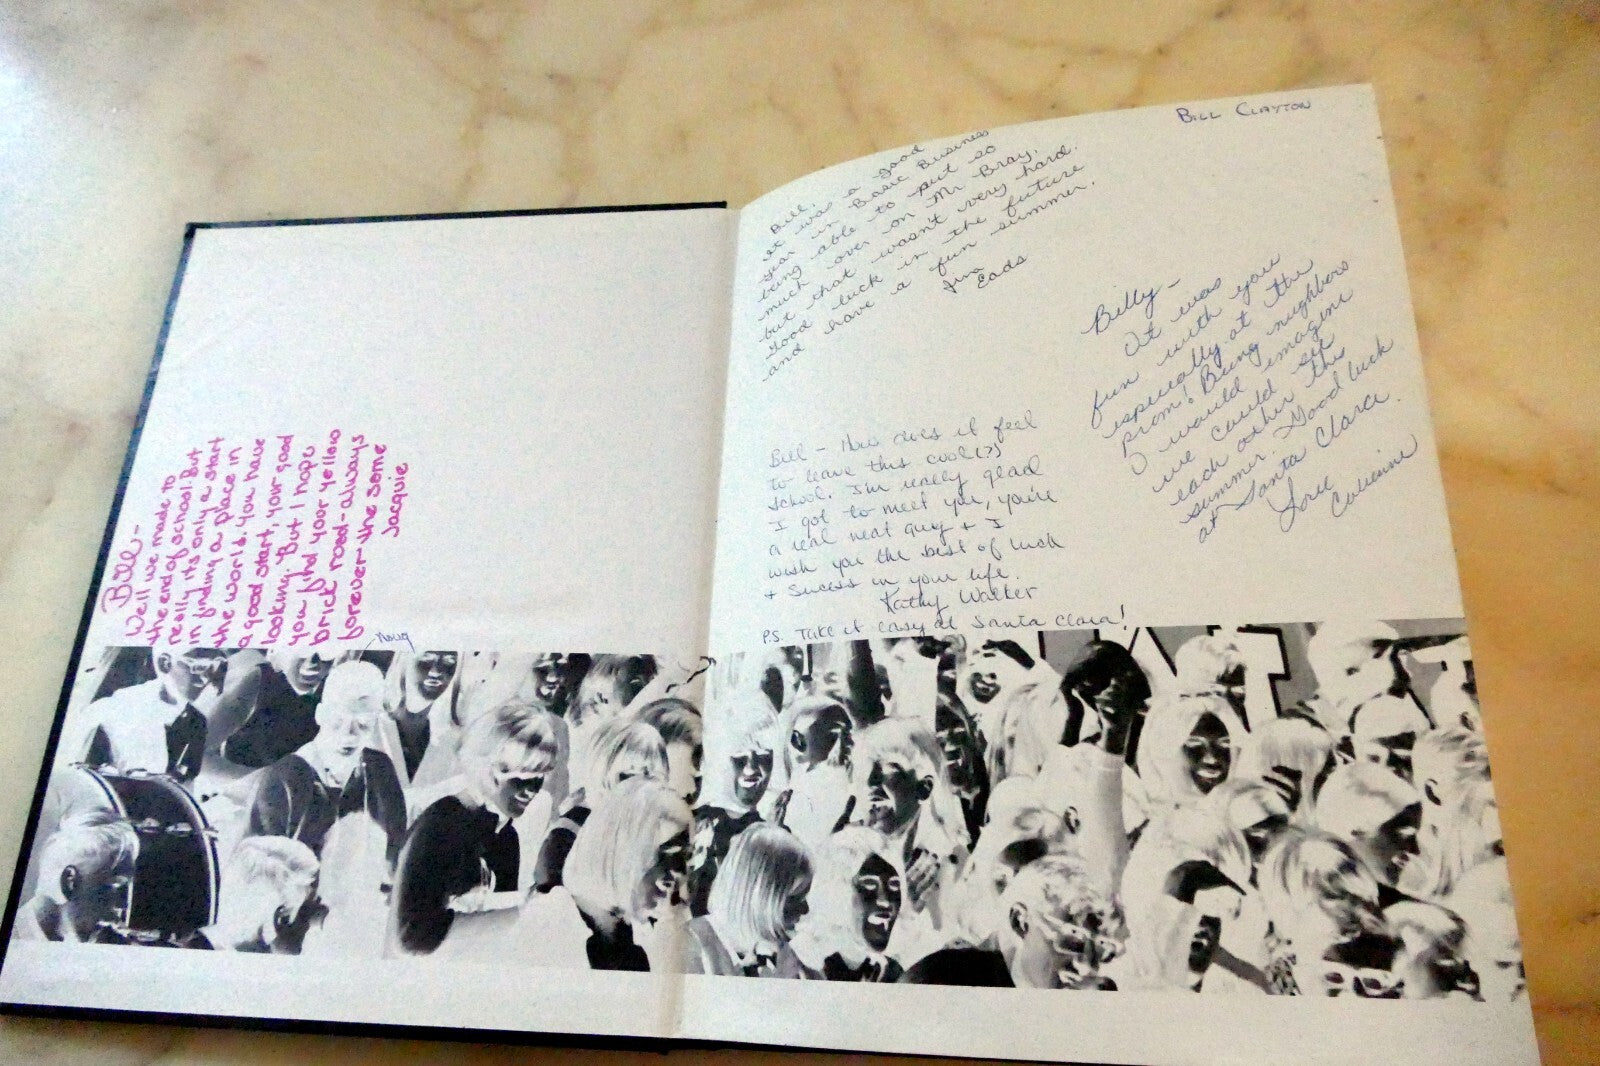 Bill -
Well we made to
the end of school. But
really its only a start
in finding a place in
the world. you have
a good start, your good
looking. But I hope
you find your yellow
brick road - always
forever the same
Jacquie
Doug
BILL CLAYTON
Bill,
It was a good
year in Basic Business
being able to put so
much over on Mr Bray.
but that wasn't very hard.
Good luck in the future
and have a fun summer.
Jim
Eads
Billy -
It was
fun with you
especially at the
prom! Being nieghbors
I would imagine
we could see
each other this
summer. Good luck
at Santa Clara.
Love
Catherine
Bill - How does it feel
to leave this cool(?)
school. I'm really glad
I got to meet you, you're
a real neat guy + I
wish you the best of luck
+ sucess in your life.
Kathy Walker
P.S. Take it easy at Santa Clara!